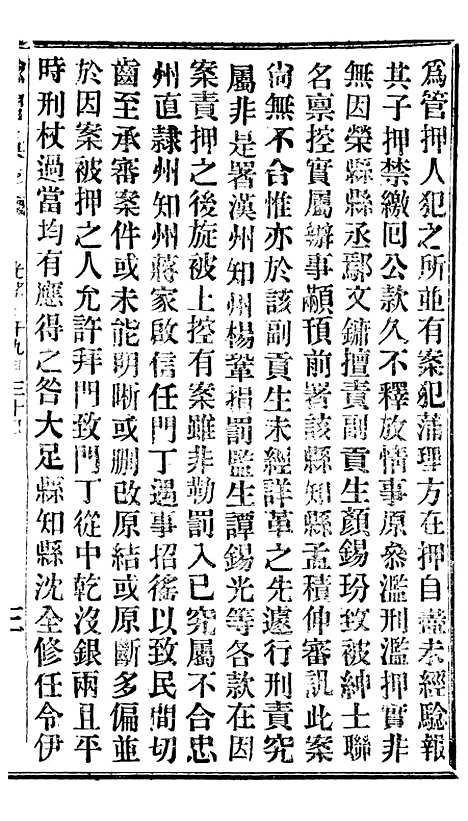 爲管押人犯之所並有案犯蒲理方在押自盡未經驗報
其子押禁繳囘公款久不釋放情事原叅濫刑濫押實非
無因榮縣縣丞鄢文鏞擅責副貢生顏錫玢致被紳士聯
名禀控實屬辦事顢頇前署該縣知縣孟積伸審訊此案
尙無不合惟亦於該副貢生未經詳革之先遽行刑責究
屬非是署漢州知州楊鞏捐罰監生譚錫光等各款在因
案責押之後旋被上控有案雖非勒罰入已究屬不合忠
州直隷州知州蔣家啟信任門丁遇事招徭以致民間切
齒至承審案件或未能明晰或刪改原結或原斷多偏並
於因案被押之人允許拜門致門丁從中乾沒銀兩且平
時刑杖過當均有應得之咎大足縣知縣沈全修任令伊
光緒二十九年三十